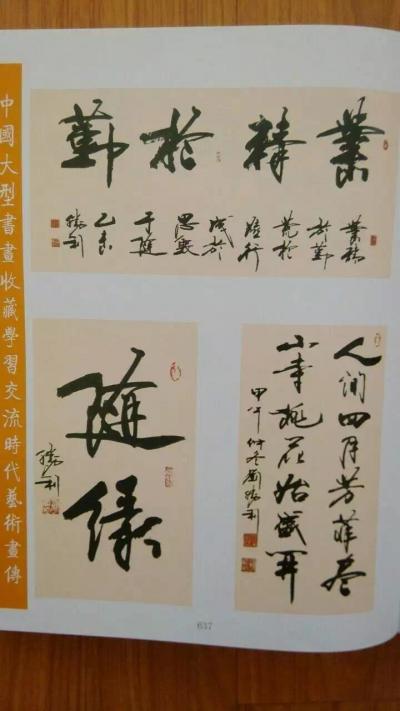 中國大型書畫收藏學習交流時代藝術畫傳
業精於勤
業精
於勤
荒於
嬉行
成於
思毀
于随
乙未
勝利
随緣
勝利
人间四月芳菲尽
山寺桃花始盛開
甲午仲冬劉勝利
637